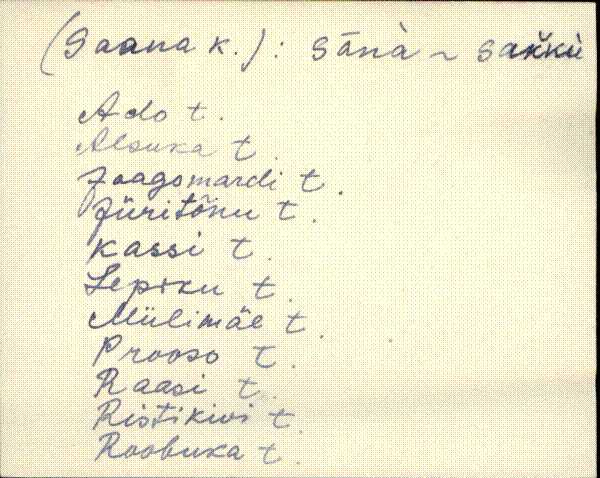 (Saana k.) : sānà ~ sakkù
Ado t.
Alsuka t.
Jaagomardi t.
Jüritõnu t.
Kassi t.
Lepiku t.
Müilimäe t.
Prooso t.
Raasi t.
Ristikivi t.
Roobuka t.